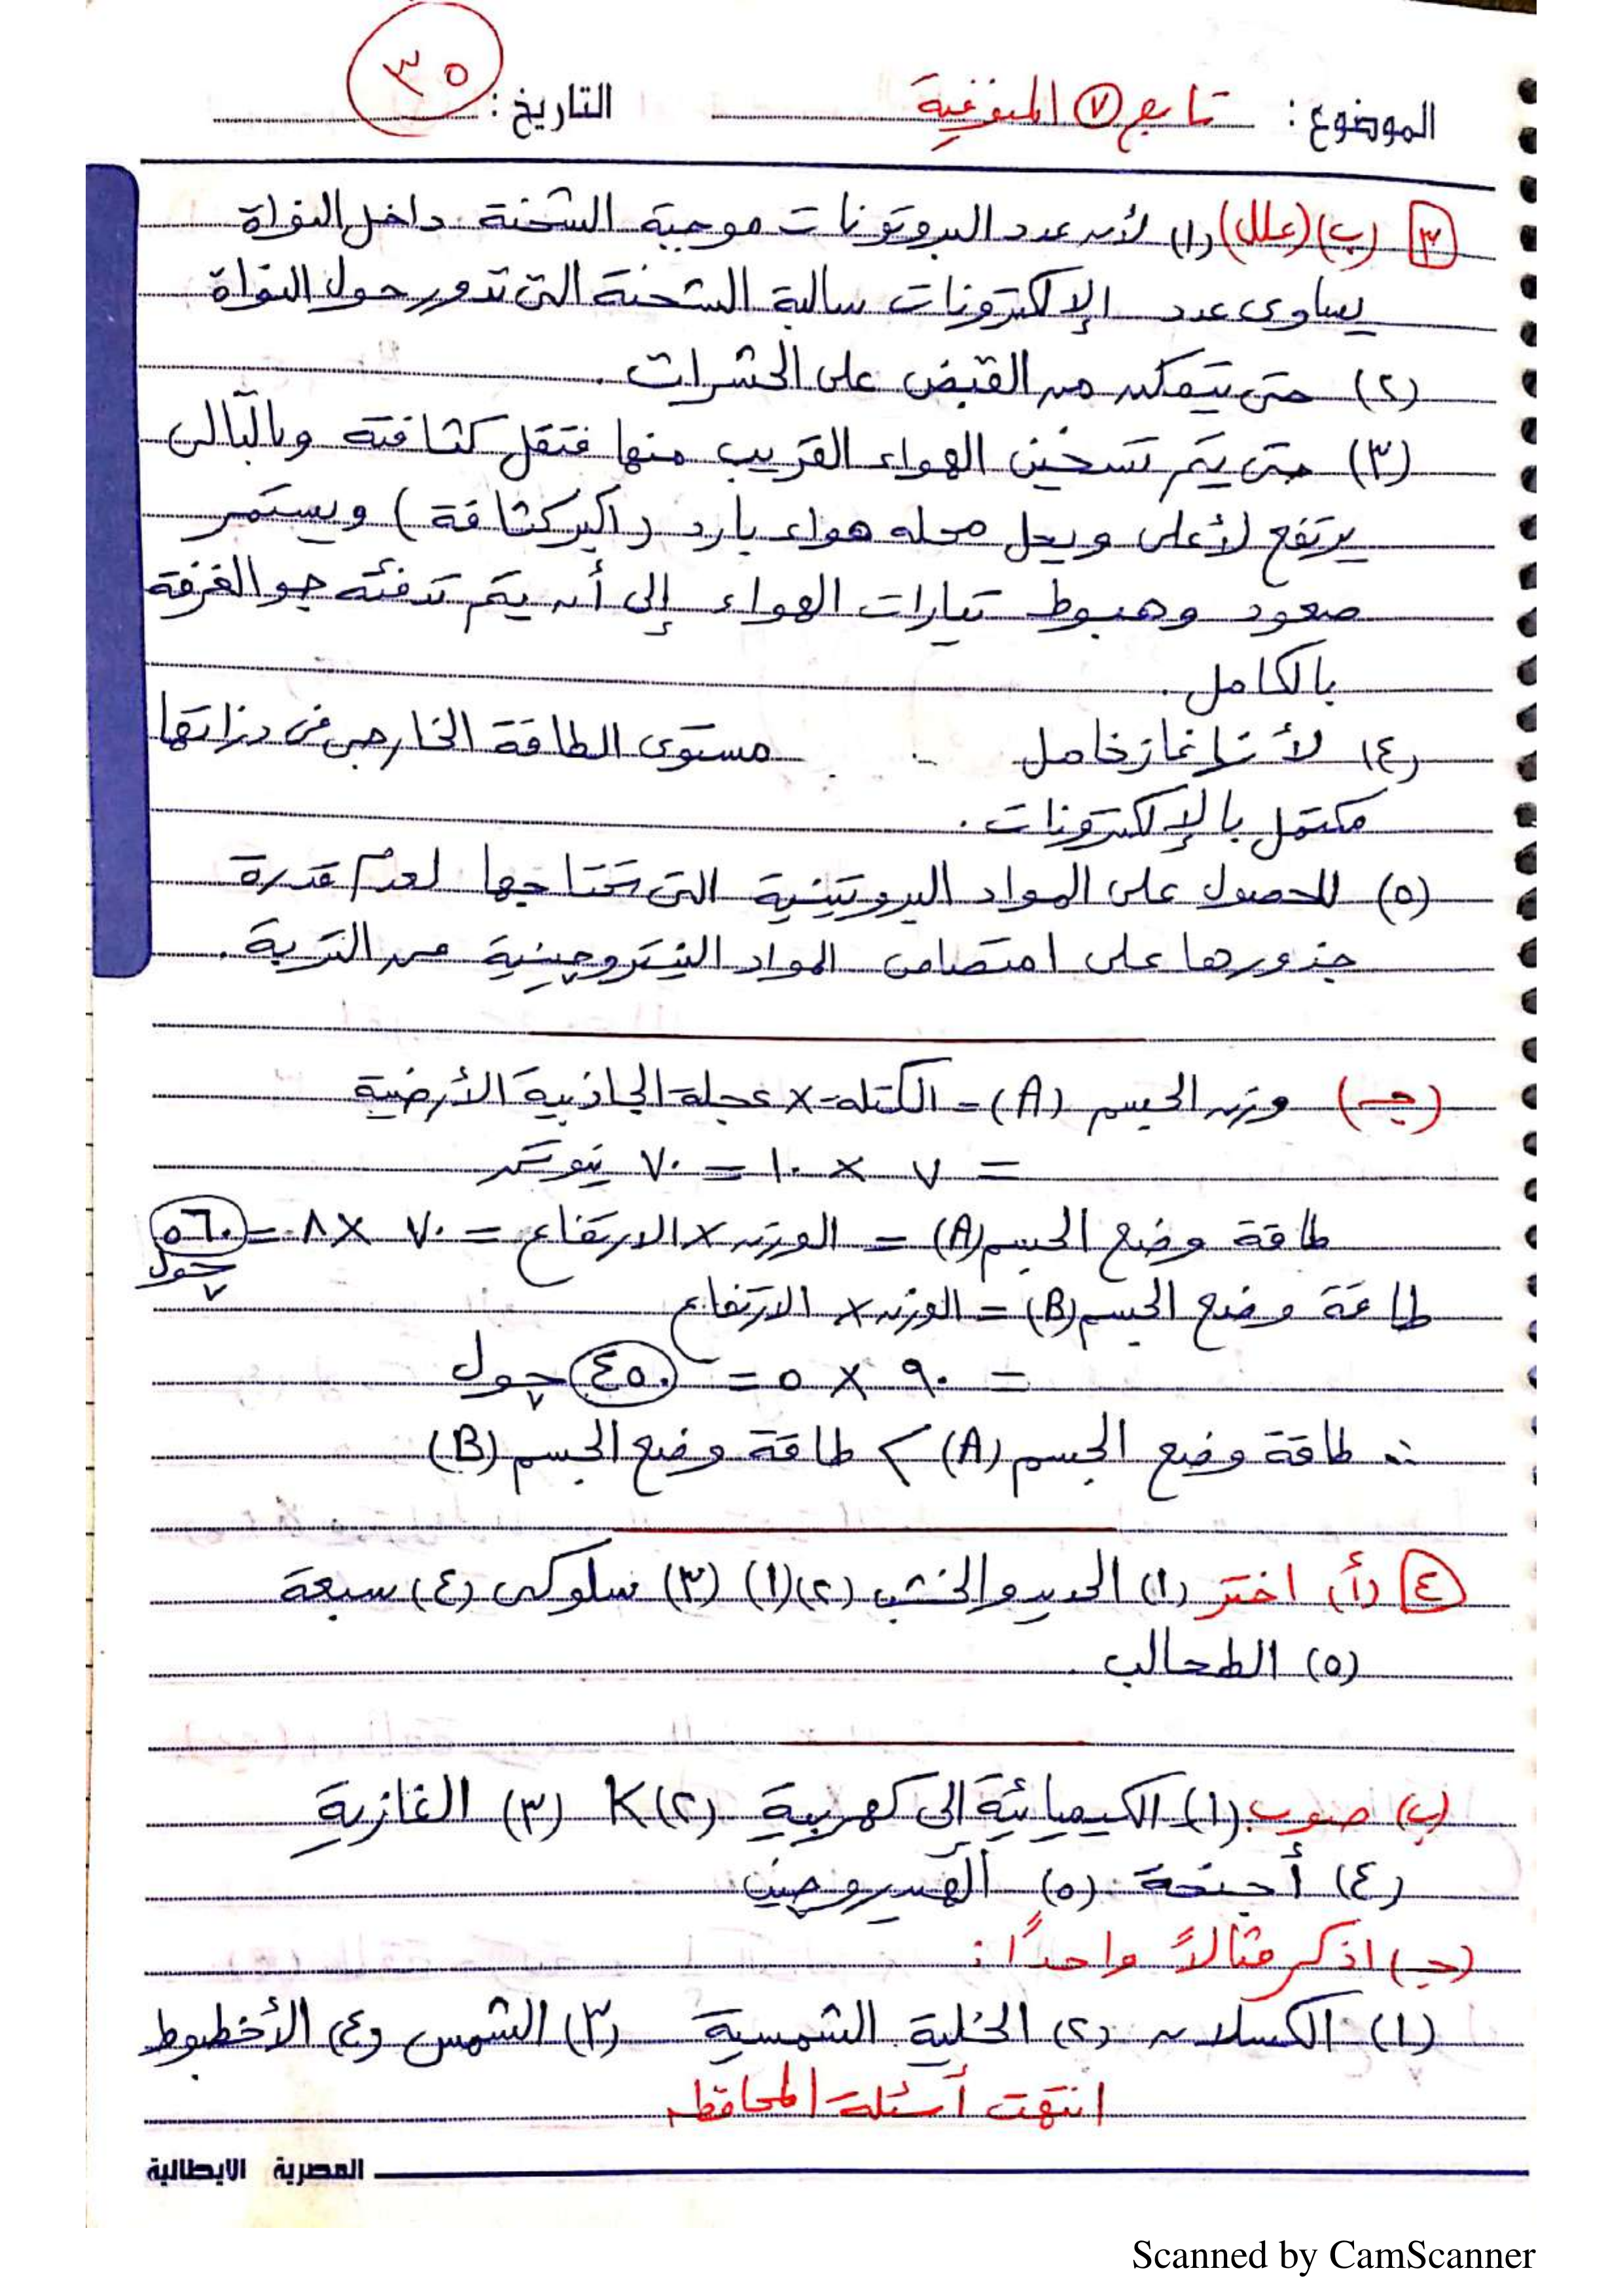 ٣٥
الموضوع: تابع ٧ المنوفية التاريخ:
٣ (ب) (علل) (١) لأن عدد البروتونات موجبة الشحنة داخل النواة
يساوى عدد الإلكترونات سالبة الشحنة التى تدور حول النواة
(٢) حتى يتمكن من القبض على الحشرات.
(٣) حتى يتم تسخين الهواء القريب منها فتقل كثافته وبالتالى
يرتفع لأعلى ويحل محله هواء بارد (أكبر كثافة) ويستمر
صعود وهبوط تيارات الهواء إلى أن يتم تدفئة جو الغرفة
بالكامل.
(٤) لأنها غاز خامل مستوى الطاقة الخارجى فى ذراتها
مكتمل بالإلكترونات.
(٥) للحصول على المواد البروتينية التى تحتاجها لعدم قدرة
جذورها على امتصاص المواد النيتروجينية من التربة.
(جـ) وزن الجسم (A) = الكتلة × عجلة الجاذبية الأرضية
= ٧ × ١٠ = ٧٠ نيوتن
طاقة وضع الجسم (A) = الوزن × الارتفاع = ٧٠ × ٨ = ٥٦٠
جول
طاقة وضع الجسم (B) = الوزن × الارتفاع
= ٩٠ × ٥ = ٤٥٠ جول
∴ طاقة وضع الجسم (A) > طاقة وضع الجسم (B)
٤ (أ) اختر (١) الحديد والخشب (٢) (١) (٣) سلوكى (٤) سبعة
(٥) الطحالب
(ب) صوب (١) الكيميائية إلى كهربية (٢) K (٣) الغازية
(٤) أجنحة (٥) الهيدروجين
(جـ) اذكر مثالاً واحداً:
(١) الكسلان (٢) الخلية الشمسية (٣) الشمس (٤) الأخطبوط
انتهت أسئلة المحافظة
المصرية الايطالية
Scanned by CamScanner